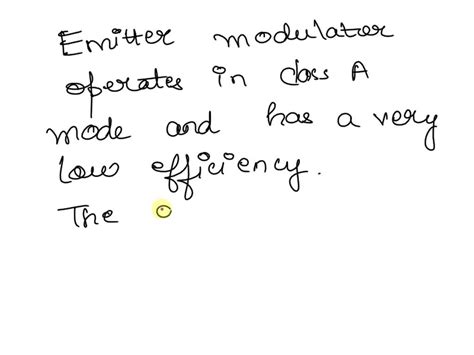 Emitter modulator
operates in class A
mode and has a very
low efficiency.
The